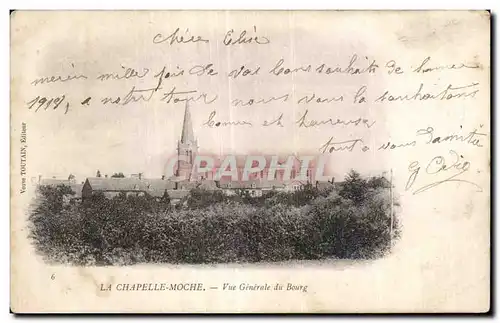 Chère Elise
merçin mille fois de vos bons souhaits de bonne
1912, a notre tour nous vous la souhaitons
bonne et heureuse
tout a vous damitié
G Carié
CARPHI
Vve TOUTAIN, Editeur
6
LA CHAPELLE-MOCHE. – Vue Générale du Bourg